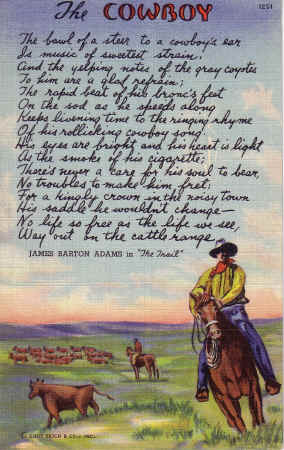 The COWBOY
1251
The bawl of a steer to a cowboy's ear
Is music of sweetest strain;
And the yelping notes of the gray coyotes
To him are a glad refrain;
The rapid beat of his bronc's feet
On the sod as he speeds along
Keeps livening time to the ringing rhyme
Of his rollicking cowboy song.
His eyes are bright and his heart is light
As the smoke of his cigarette;
There's never a care for his soul to bear,
No troubles to make him fret;
For a kingly crown in the noisy town
His saddle he wouldn't change—
No life so free as the life we see,
Way out on the cattle range.
JAMES BARTON ADAMS in "The Trail"
© CURT TEICH & CO., INC.